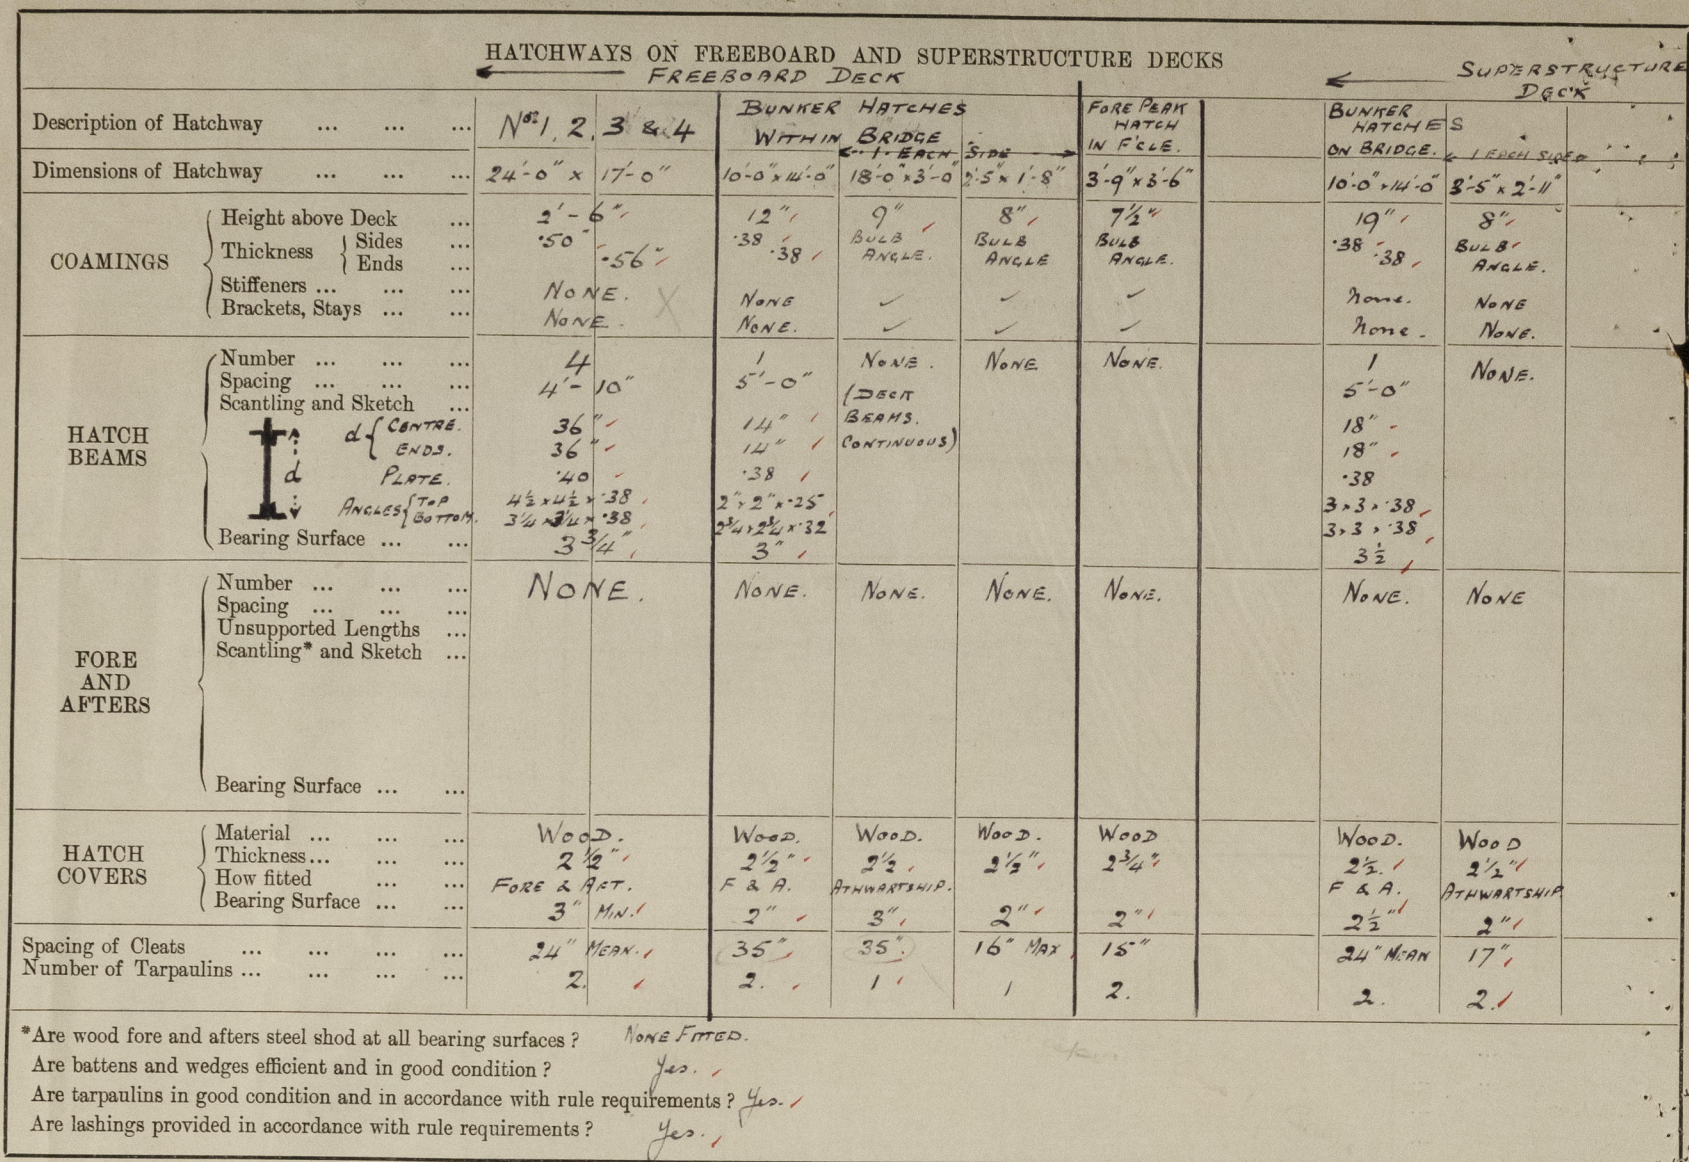 HATCHWAYS ON FREEBOARD AND SUPERSTRUCTURE DECKS
FREEBOARD DECK SUPERSTRUCTURE DECK
Description of Hatchway ... ... ... Nos. 1, 2, 3 & 4 BUNKER HATCHES WITHIN BRIDGE 1 EACH SIDE FORE PEAK HATCH IN F'CLE. BUNKER HATCHES ON BRIDGE. 1 EACH SIDE
Dimensions of Hatchway ... ... ... 24'-0" x 17'-0" 10'-0" x 14'-0" 18'-0" x 3'-0" 2'-5" x 1'-8" 3'-9" x 3'-6" 10'-0" x 14'-0" 3'-5" x 2'-11"
COAMINGS
Height above Deck ... 2'-6" 12" 9" 8" 7½" 19" 8"
Thickness { Sides ... .50" .38 BULB ANGLE. BULB ANGLE BULB ANGLE. .38 BULB ANGLE.
Ends ... .56" .38 .38
Stiffeners ... ... ... NONE. NONE ✓ ✓ ✓ None. NONE
Brackets, Stays ... ... NONE. NONE. ✓ ✓ ✓ None. NONE.
HATCH BEAMS
Number ... ... ... 4 1 NONE. NONE NONE. 1 NONE.
Spacing ... ... ... 4'-10" 5'-0" (DECK BEAMS. CONTINUOUS) 5'-0"
Scantling and Sketch ...
d { CENTRE. 36" 14" 18"
ENDS. 36" 14" 18"
d PLATE. .40 .38 .38
ANGLES { TOP 4½ x 4½ x .38 2" x 2" x .25 3 x 3 x .38
BOTTOM. 3¼ x 3¼ x .38 2¾ x 2¾ x .32 3 x 3 x .38
Bearing Surface ... ... 3¾" 3" 3½
FORE AND AFTERS
Number ... ... ... NONE. NONE. NONE. NONE. NONE. NONE. NONE
Spacing ... ... ...
Unsupported Lengths ...
Scantling* and Sketch ...
Bearing Surface ... ...
HATCH COVERS
Material ... ... ... WOOD. WOOD. WOOD. WOOD. WOOD WOOD. WOOD
Thickness... ... ... 2½" 2½" 2½ 2½" 2¾" 2½. 2½"
How fitted ... ... FORE & AFT. F & A. ATHWARTSHIP. F & A. ATHWARTSHIP
Bearing Surface ... ... 3" MIN. 2" 3" 2" 2" 2½" 2"
Spacing of Cleats ... ... ... ... 24" MEAN. 35" 35". 16" MAX 15" 24" MEAN 17"
Number of Tarpaulins ... ... ... ... 2. 2. 1 1 2. 2. 2.
*Are wood fore and afters steel shod at all bearing surfaces ? NONE FITTED.
Are battens and wedges efficient and in good condition ? Yes.
Are tarpaulins in good condition and in accordance with rule requirements ? Yes.
Are lashings provided in accordance with rule requirements ? Yes.